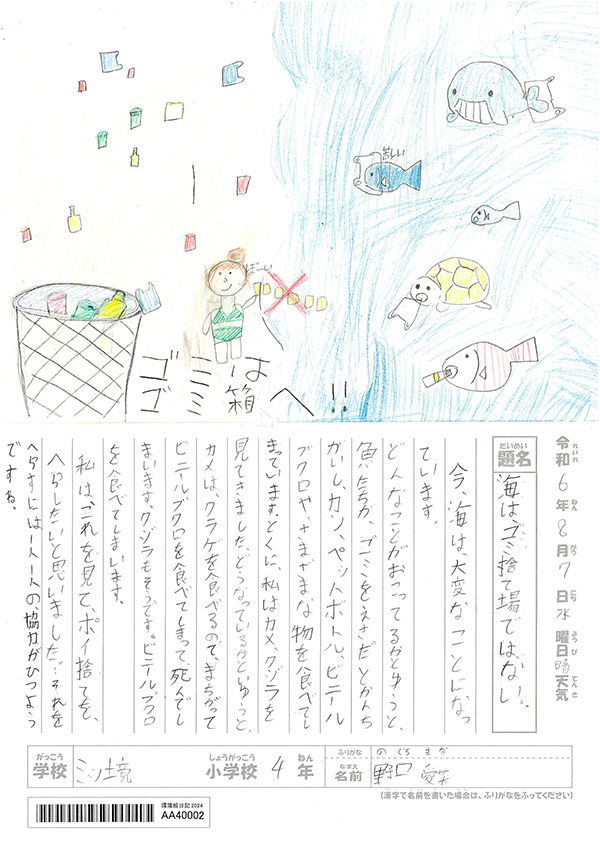 苦しい
ぽーい
ゴミは
ゴミ箱へ!!
令和6年8月7日水曜日 晴 天気
れいわ ねん がつ にち ようび てんき
だいめい
題名
海は、ゴミ捨て場ではない。
今、海は、大変なことになっ
ています。
どんなことがおこってるかとゆうと、
魚たちが、ゴミをえさだとかんち
がいし、カン、ペットボトル、ビニール
ブクロやさまざまな物を食べてし
まっています。とくに、私はカメ、クジラを
見てきました。どうなっているかとゆうと、
カメは、クラゲを食べるので、まちがって
ビニールブクロを食べてしまって、死んでし
まいます。クジラもそうです。ビニールブクロ
を食べてしまいます。
私は、これを見て、ポイ捨てを、
へらしたいと思いました。それを
へらすには一人一人の、協力がひつよう
ですね。
がっこう
学校
三ツ境
しょうがっこう
小学校
4
ねん
年
ふりがな
のぐち まな
なまえ
名前
野口 愛菜
(漢字で名前を書いた場合は、ふりがなをふってください)
環境絵日記2024
AA40002